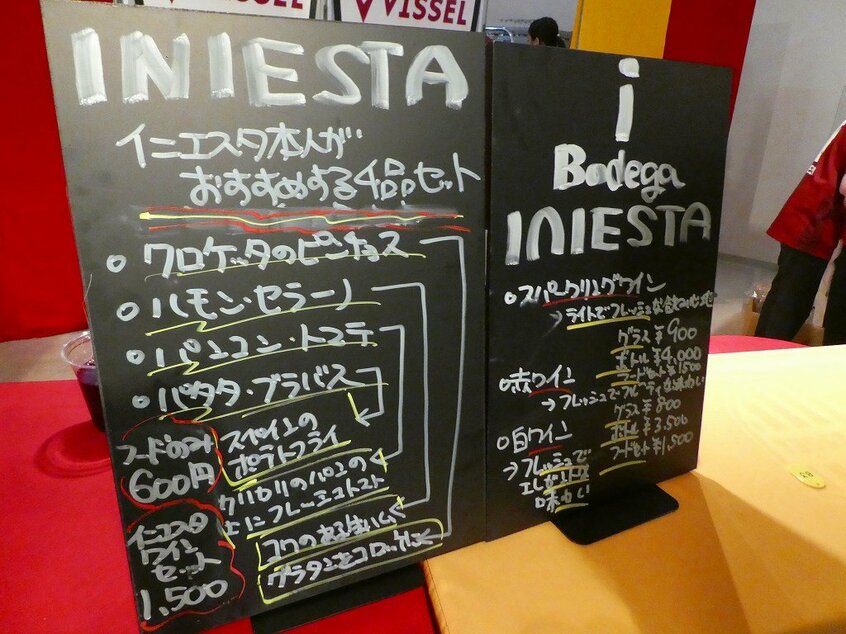 VISSEL
VISSEL
INIESTA
イニエスタ本人が
おすすめする4品セット
クロケッタのピンチョス
ハモン・セラーノ
パンコン・トマテ
パタタ・ブラバス
スペインの
ポテトフライ
カリカリのパンの
上にフレッシュトマト
コクのある生ハム
グラタンをコロッケに
フードのみ
600円
イニエスタ
ワイン
セット
1,500
i
Bodega
INIESTA
スパークリングワイン
→ライトでフレッシュな飲み心地
グラス ¥900
ボトル ¥4,000
フードセット ¥1500
赤ワイン
→フレッシュでフルーティな味わい
グラス ¥800
ボトル ¥3,500
フードセット ¥1,500
白ワイン
→フレッシュで
エレガントな
味わい